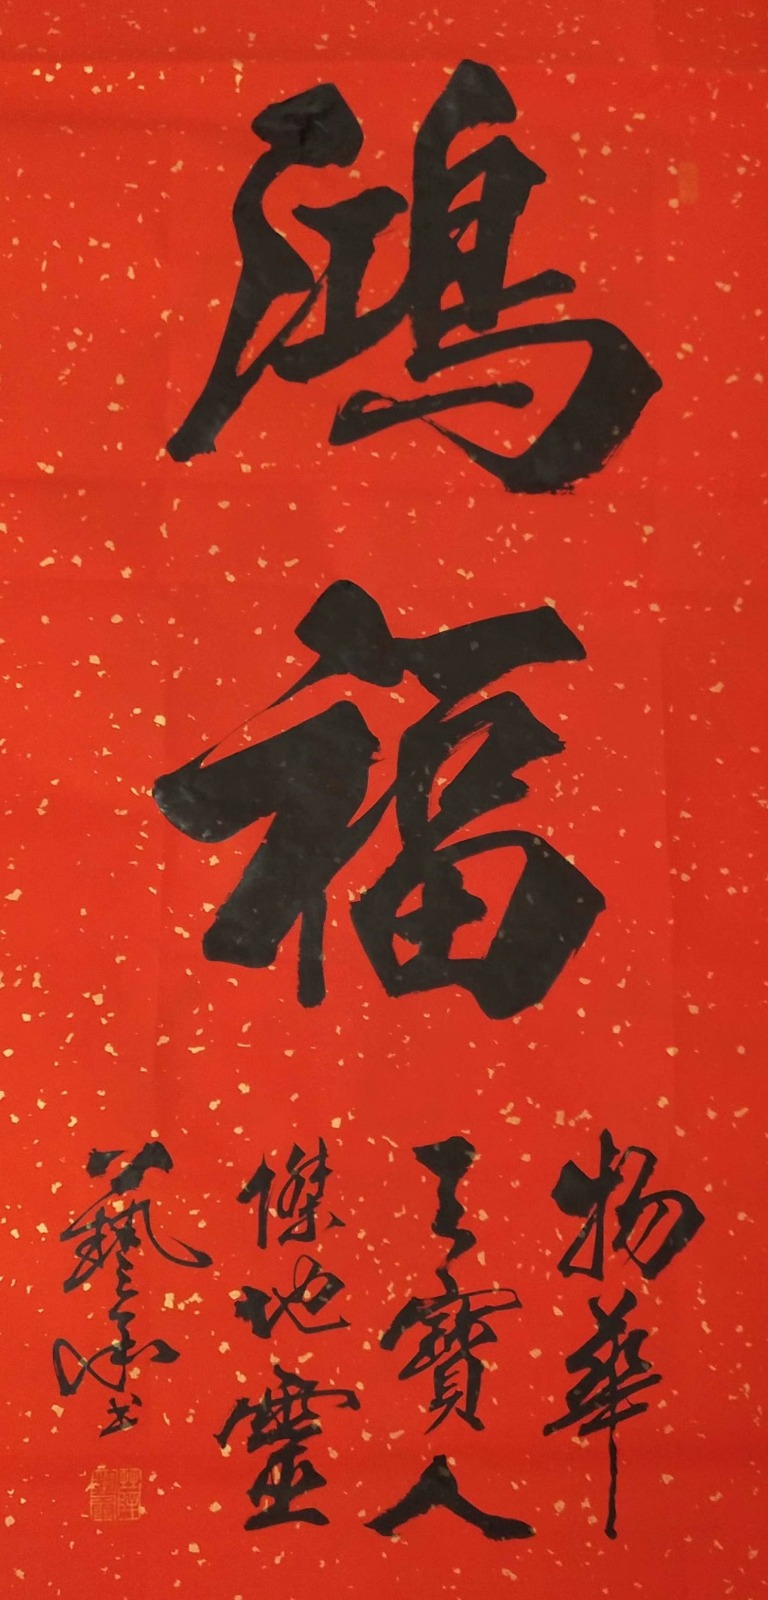 鴻
福
物華
天寶人
傑地靈
藝承書